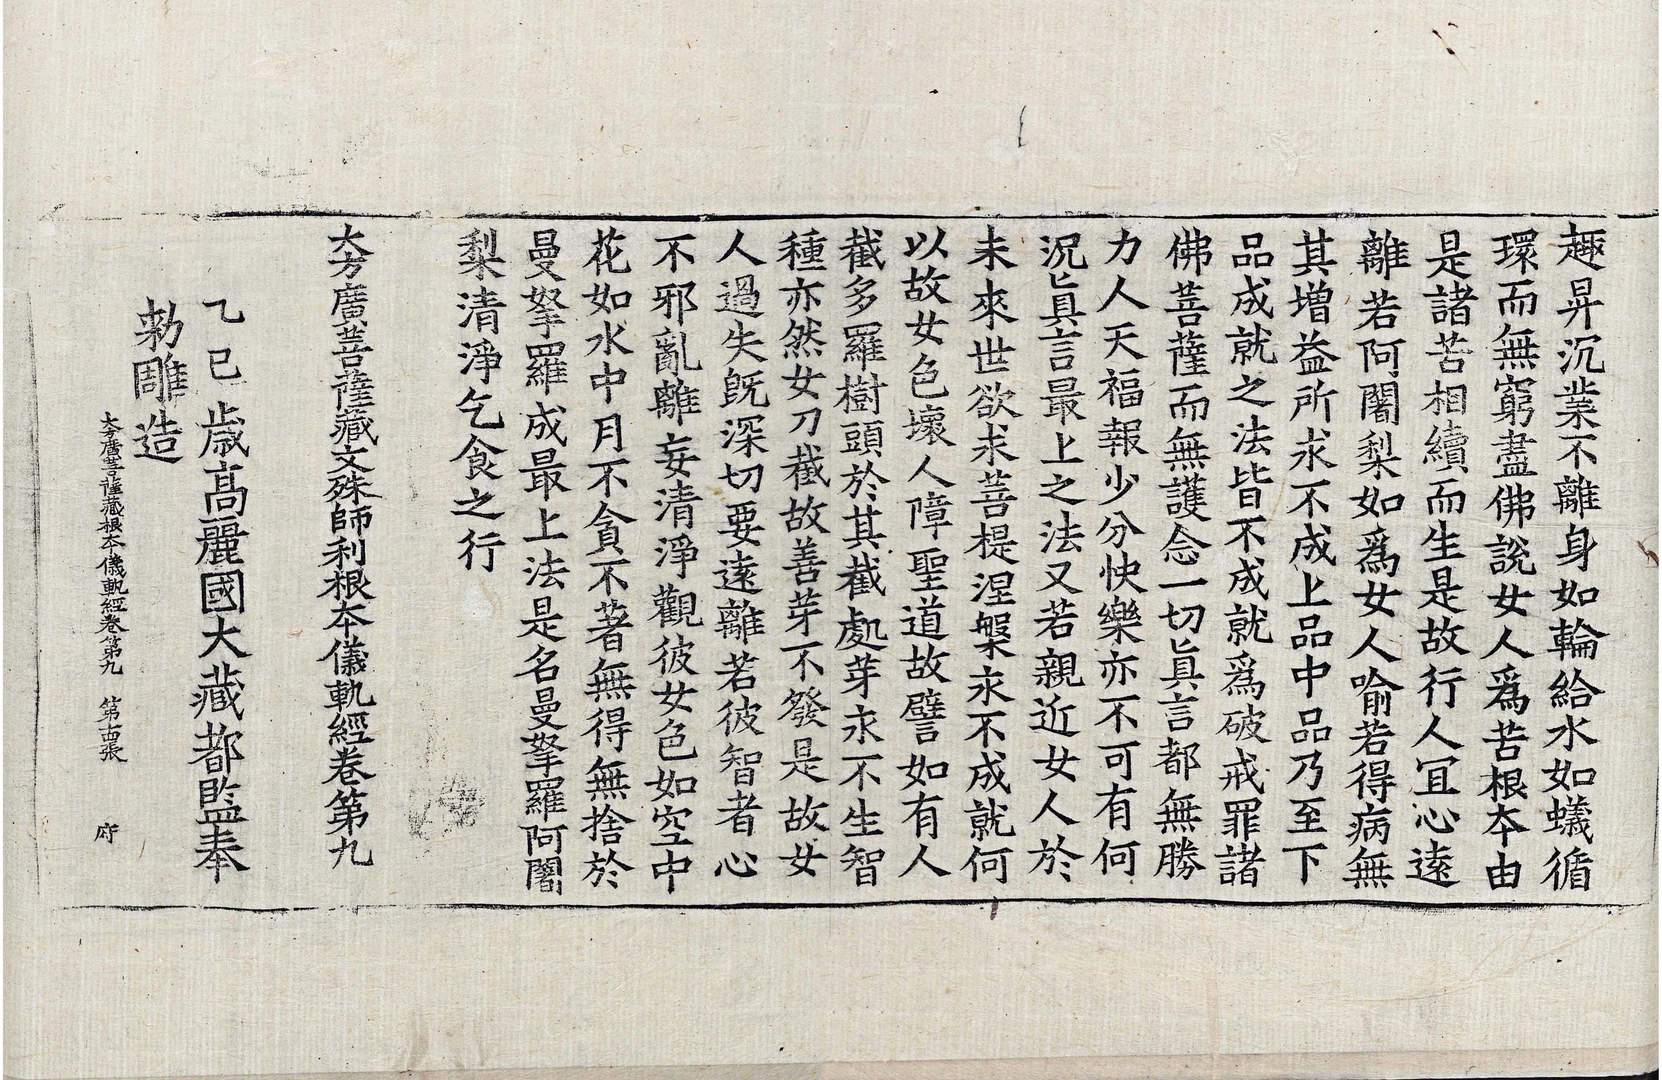 趣昇沉業不離身如輪給水如蟻循
環而無窮盡佛說女人爲苦根本由
是諸苦相續而生是故行人冝心遠
離若阿闍梨如爲女人喻若得病無
其增益所求不成上品中品乃至下
品成就之法皆不成就爲破戒罪諸
佛菩薩而無護念一切眞言都無勝
力人天福報少分快樂亦不可有何
況眞言最上之法又若親近女人於
未來世欲求菩提涅槃永不成就何
以故女色壞人障聖道故譬如有人
截多羅樹頭於其截處芽永不生智
種亦然女刀截故善芽不發是故女
人過失旣深切要遠離若彼智者心
不邪亂離妄清淨觀彼女色如空中
花如水中月不貪不著無得無捨於
曼拏羅成最上法是名曼拏羅阿闍
梨清淨乞食之行
大方廣菩薩藏文殊師利根本儀軌經卷第九
乙巳歲高麗國大藏都監奉
勅雕造
大方廣菩薩藏根本儀軌經卷第九 第十四張 府